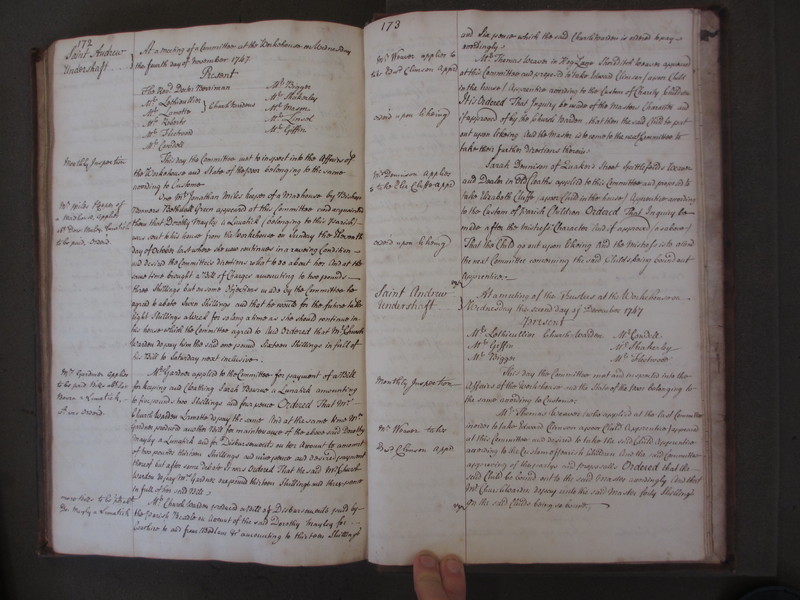 172
Saint Andrew
Undershaft
At a meeting of a Committee at the Workhouse on Wednesday
the fourth day of November 1747
Present
The Revd. Doctor Berriman
Mr. Lethieullier
Mr.
Mr. Roberts
Mr. Fleetwood
Mr. Cordell
Church Wardens
Mr. Biggs
Mr. Shakerley
Mr.
Mr.
Mr. Giffin
Monthly Inspection
This day the Committee met to inspect into the Affairs of
the Workhouse and State of the poor belonging to the same
according to Custome
Mr. Miles Keeper of
a Madhouse applies
to be paid, Ordered
One Mr. Jonathan Miles keeper of a Madhouse by Bishop
Bonners Bethnall Green appeared at this Committee and acquainted
them that Dorothy Mayley a Lunatick (belonging to this Parish)
was sent to his house from the Workhouse on Sunday the
day of October last where she now continues in a raveing Condition
and desired the Committee's directions what to do about her And at the
same time brought a Bill of Charges amounting to two pounds
three Shillings but on some Objections made by the Committee he
agreed to abate Seven Shillings and that he would for the future take
Eight Shillings a Week for so long a time as she should continue in
his house which the Committee agreed to And Ordered that Mr. Church
Warden do pay him the said one pound Sixteen Shillings in full of
his Bill to Saturday next inclusive.
Mr. Gardner applies
to be paid
a Lunatick,
Ordered
Mr. Gardner applied to the Committee for payment of a Bill
for keeping and Cloathing Sarah Bourne a Lunatick amounting
to four pounds two Shillings and four pence Ordered That Mr.
Church Warden do pay the same And at the same time Mr.
Gardner produced another Bill for maintenance of the above said Dorothy
Mayley a Lunatick and for Disbursements on her Account to amount
of two pounds thirteen Shillings and nine pence and desired payment
thereof but after some debate It was Ordered That the said Mr. Church
Warden do pay Mr. Gardner one pound thirteen Shillings and three pence
in full of his said Bill.
Mr. Church Warden produced a Bill of Disbursements paid by
the Parish Beadle on Account of the said Dorothy Mayley for
to and from Bedlam &c amounting to thirteen Shillings
173
and Six pence which the said Church Warden is ordered to pay
accordingly.
Mr. Weaver applies to
Clemson Appd.
Mr. Thomas Weaver in Hog Lane Shoreditch Weaver appeared
at this Committee and proposed to take Edward Clemson (a poor Child
in the house) Apprentice according to the Custom of Charity Children
It is Ordered That Inquiry be made of the Masters Character and
if approved of by the Church Warden that then the said Child be put
out upon likeing And the Master is to come to the next Committee to
take their further directions therein.
upon likeing
Mr. Dennison applies
to take Eliz Cluffe appd.
Sarah Dennison of Quaker's Street Spittlefields Weaver
and Dealer in Old Cloaths applied to this Committee and proposed to
take Elizabeth Cluffe (a poor Child in the house) Apprentice according
to the Custom of parish Children Ordered That Inquiry be
made after the Mistress's Character And if approved
That the Child go out upon likeing And the Mistress is to attend
the next Committee concerning the said Childs being bound out
Apprentice.
upon likeing
Saint Andrew
Undershaft
At a meeting of the Trustees at the Workhouse on
Wednesday the second day of December 1747
Present
Mr. Lethieullier Church Warden
Mr. Giffin
Mr. Biggs
Mr. Cordell
Mr. Shakerley
Mr. Fleetwood
Monthly Inspection
This day the Committee met and inspected into the
Affairs of the Workhouse and the State of the Poor belonging to
the same according to Custome.
Mr. Weaver takes
Edwd. Clemson Appd.
Mr. Thomas Weaver (who applied at the last Committee
in order to take Edward Clemson a poor Child Apprentice) appeared
at this Committee and desired to take the said Child Apprentice
according to the Custom of parish Children And the said Committee
approving of the partys and proposalls Ordered that the
said Child be bound out to the said Master accordingly And that
Mr. Church Warden do pay unto the said Master forty Shillings
on the said Childs being so bound.